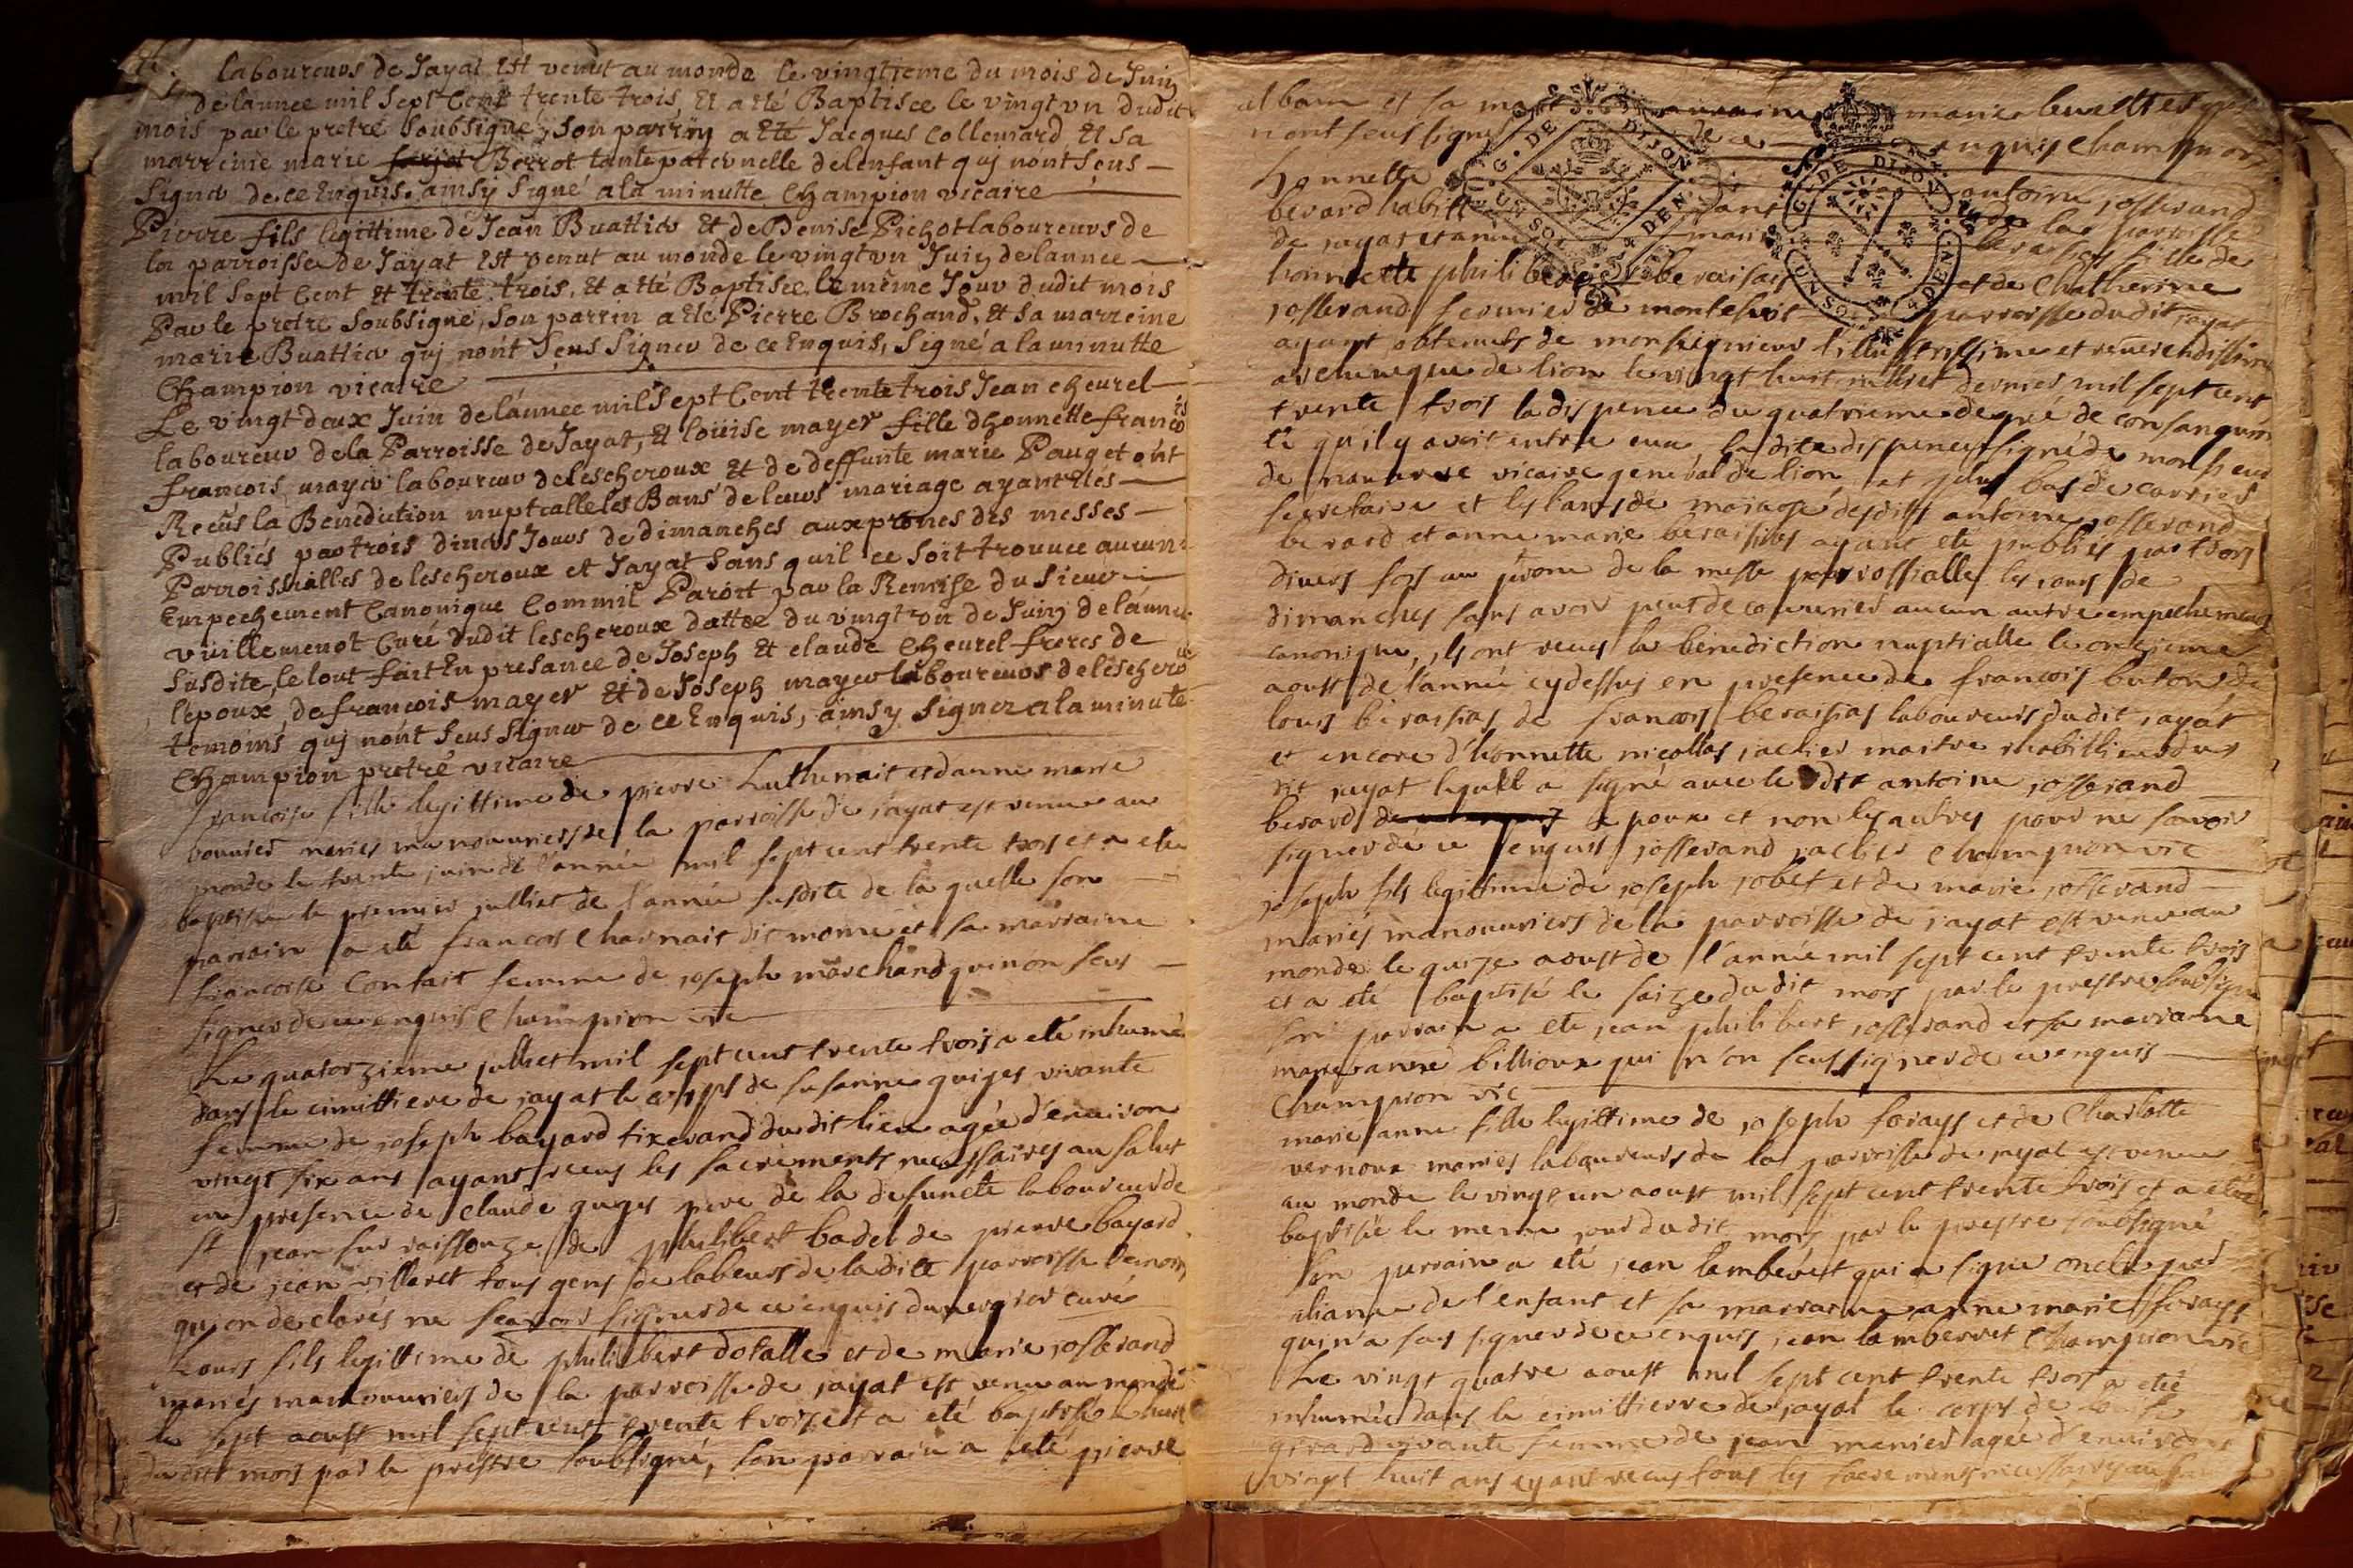 laboureurs de Jayat Est venut au monde le vingtieme du mois de Juin
de lannee mil sept Cent trente trois, Et a eté Baptisée le vingt un dudit
mois par le pretre soubsigné, son parrin a Eté Jacques Collemard Et sa
marreine marie Borrot tante paternelle delenfant quj nont sçus
signer de ce Enquis. ainsy signé a la minutte Champion vicaire
Pierre fils legittime de Jean Buattier Et de Denise Pichot laboureurs de
la parroisse de Jayat Est venut au monde le vingt un Juin de lannee
mil sept Cent Et trente trois, Et a eté Baptisée le même Jour dudit mois
Par le pretre soubsigné, son parrin a eté Pierre Brochand, Et sa marreine
marie Buattier quj nont sçus signer de ce Enquis, signé a la minutte
Champion vicaire
Le vingt deux Juin de lánnee mil sept Cent trente trois Jean cheurel
laboureur dela Parroisse de Jayat, Et louise mayer fille dhonnette francois
francois mayer laboureur delescheroux Et de deffunte marie Pauget ont
Recus la Benediction nuptialle les Bans de leurs mariage ayant Etés
Publiés par trois divers Jours de dimanches aux prones des messes
Parroissialles de lescheroux et Jayat sans quil ce soit trouuee aucun
Empechement Canonique Commil Paroit par la Remise du sieur
vuillemenot Curé dudit lescheroux dattee du vingt un de Juin de lánnee
susdite, le tout fait En presance de Joseph Et claude Cheurel freres de
lépoux, de francois mayer Et de Joseph mayer laboureurs de lescheroux
temoins quj nont sçus signer de ce Enquis, ainsy signez a la minute
Champion pretre vicaire
francoise fille legittime de pierre Luthenait et danne marie
bouvier mariés manouuriers de la parroisse de jayat est venue au
monde le trente juin de l'année mil sept cent trente trois et a eté
baptisée le premier julliet de l'année susdite de la quelle son
parrain a eté francois Charnait dit mome et sa marraine
francoise Contait femme de joseph marchand qui non sçus
signer de ce enquis Champion vic
Le quatorzieme julliet mil sept cent trente trois a eté inhumé
dans le cimittiere de jayat le corps de susanne guiges vivante
femme de joseph bayard tixerand du dit lieu agée d'enuiron
vingt six ans ayans recus les sacrements necessaires au salut
en presence de claude guges pere de la defuncte laboureur de
st jean sur raissouze de philibert badel de pierre bayard
et de jean villaret tous gens de labeurs de la dite parroisse temoins
qui on declarés ne scavoir signer de ce enquis duvergier curé
Louis fils legittime de philibert dotalle et de marie josserand
mariés manouuriers de la parroisse de jayat est venu au monde
le sept aoust mil sept cent trente trois et a eté baptisé le huit
du dit mois par le prestre soubsigné, son parrain a eté pierre
alban et sa marraine marie
nont sçus signer de ce enquis Champion
honnette antoine josserand
berard de la parroisse
de jayat et anne marie beraisias fille de
honnette philibert beraisias et de Chatherine
josserand fermier de parroisse dudit jayat
ayant obtenuts de monseigneur l'illustrissime et reuerendissime
archeueque de lion le vingt huit julliet dernier mil sept cent
trente trois la dispence du quatrieme degré de consanguini
té qu'il y avoit entre eux, la dite dispence signé de monsieur
de nauarre vicaire general de lion et plus bas de carrier
secretaire et les bans de mariage desdits antoine josserand
berard et anne marie beraisias ayant eté publiés par trois
divers fois au prone de la messe parrossialle les jours de
dimanches sans avoir peut decouurier aucun autre empechement
canonique, ils ont recus la benediction nuptialle le onzieme
aoust de l'année cy dessus en presence de francois buton de
louis beraisias de francois beraisias laboureurs dudit jayat
et encore d'honnette nicollas jaclier maitre rhabillieur du
dit jayat lequel a signé auec le dit antoine josserand
berard epoux et non les autres pour ne savoir
signer de ce enquis josserand jaclier Champion vic
joseph fils legittime de joseph jobet et de marie josserand
mariés manouuriers de la parroisse de jayat est venu au
monde le quize aoust de l'année mil sept cent trente trois
et a eté baptisé le saize du dit mois par le prestre soubsigné
son parrain a eté jean philibert josserand et sa marraine
marie anne billioux qui n'on sçus signer de ce enquis
Champion vic
marie anne fille legittime de joseph forays et de Charlotte
vernoux mariés laboureurs de la parroisse de jayat est venue
au monde le vingt un aoust mil sept cent trente trois et a eté
baptisée le meme jour du dit mois par le prestre soubsigné
son parrain a eté jean lamberet qui a signé oncle par
aliance de l'enfant et sa marraine anne marie forays
qui n'a sçus signer de ce enquis jean lamberret Champion vic
Le vingt quatre aoust mil sept cent trente trois a eté
inhumée dans le cimittierre de jayat le corps de
girard vivante femme de jean menier agée d'enuirons
vingt huit ans ayant recus tous les sacrements necessaires au
G. DE DIJON
4 DEN.
G. DE DIJON
4 DEN.